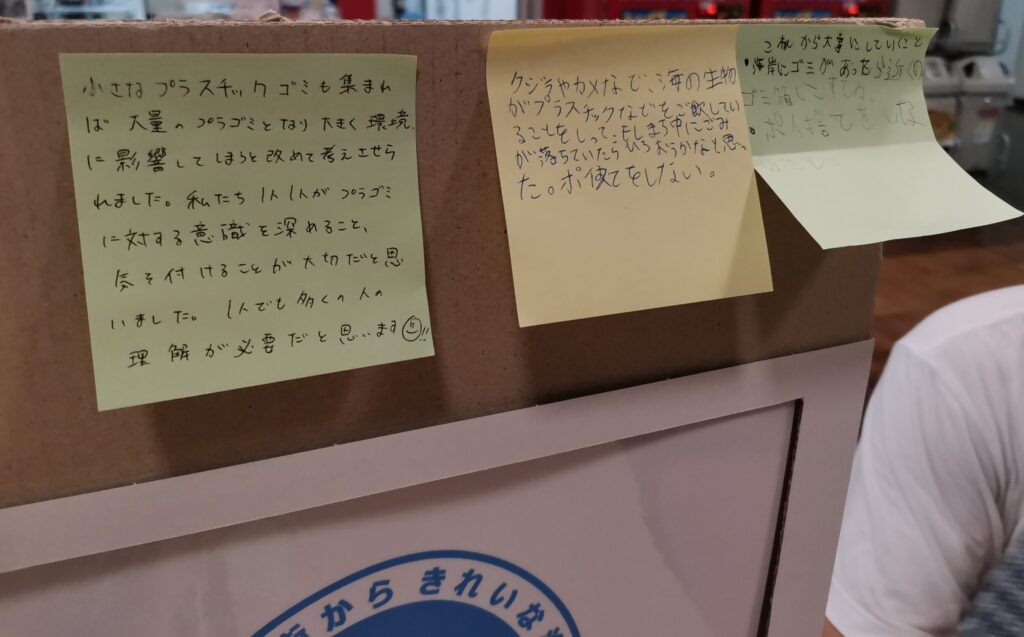 小さなプラスチックゴミも集まれ
ば大量のプラゴミとなり大きく環境
に影響してしまうと改めて考えさせら
れました。私たち1人1人がプラゴミ
に対する意識を深めること、
気を付けることが大切だと思
いました。1人でも多くの人の
理解が必要だと思います!!
クジラやカメなど、海の生物
がプラスチックなどをご飲してい
ることをしって、もしまち中にごみ
が落ちていたらひろおうかなと思っ
た。ポイ捨てをしない。
これから大事にしていくこと
・海岸にゴミがあったら近くの
ゴミ箱にすてる。
・ポイ捨てをしな
からきれいな